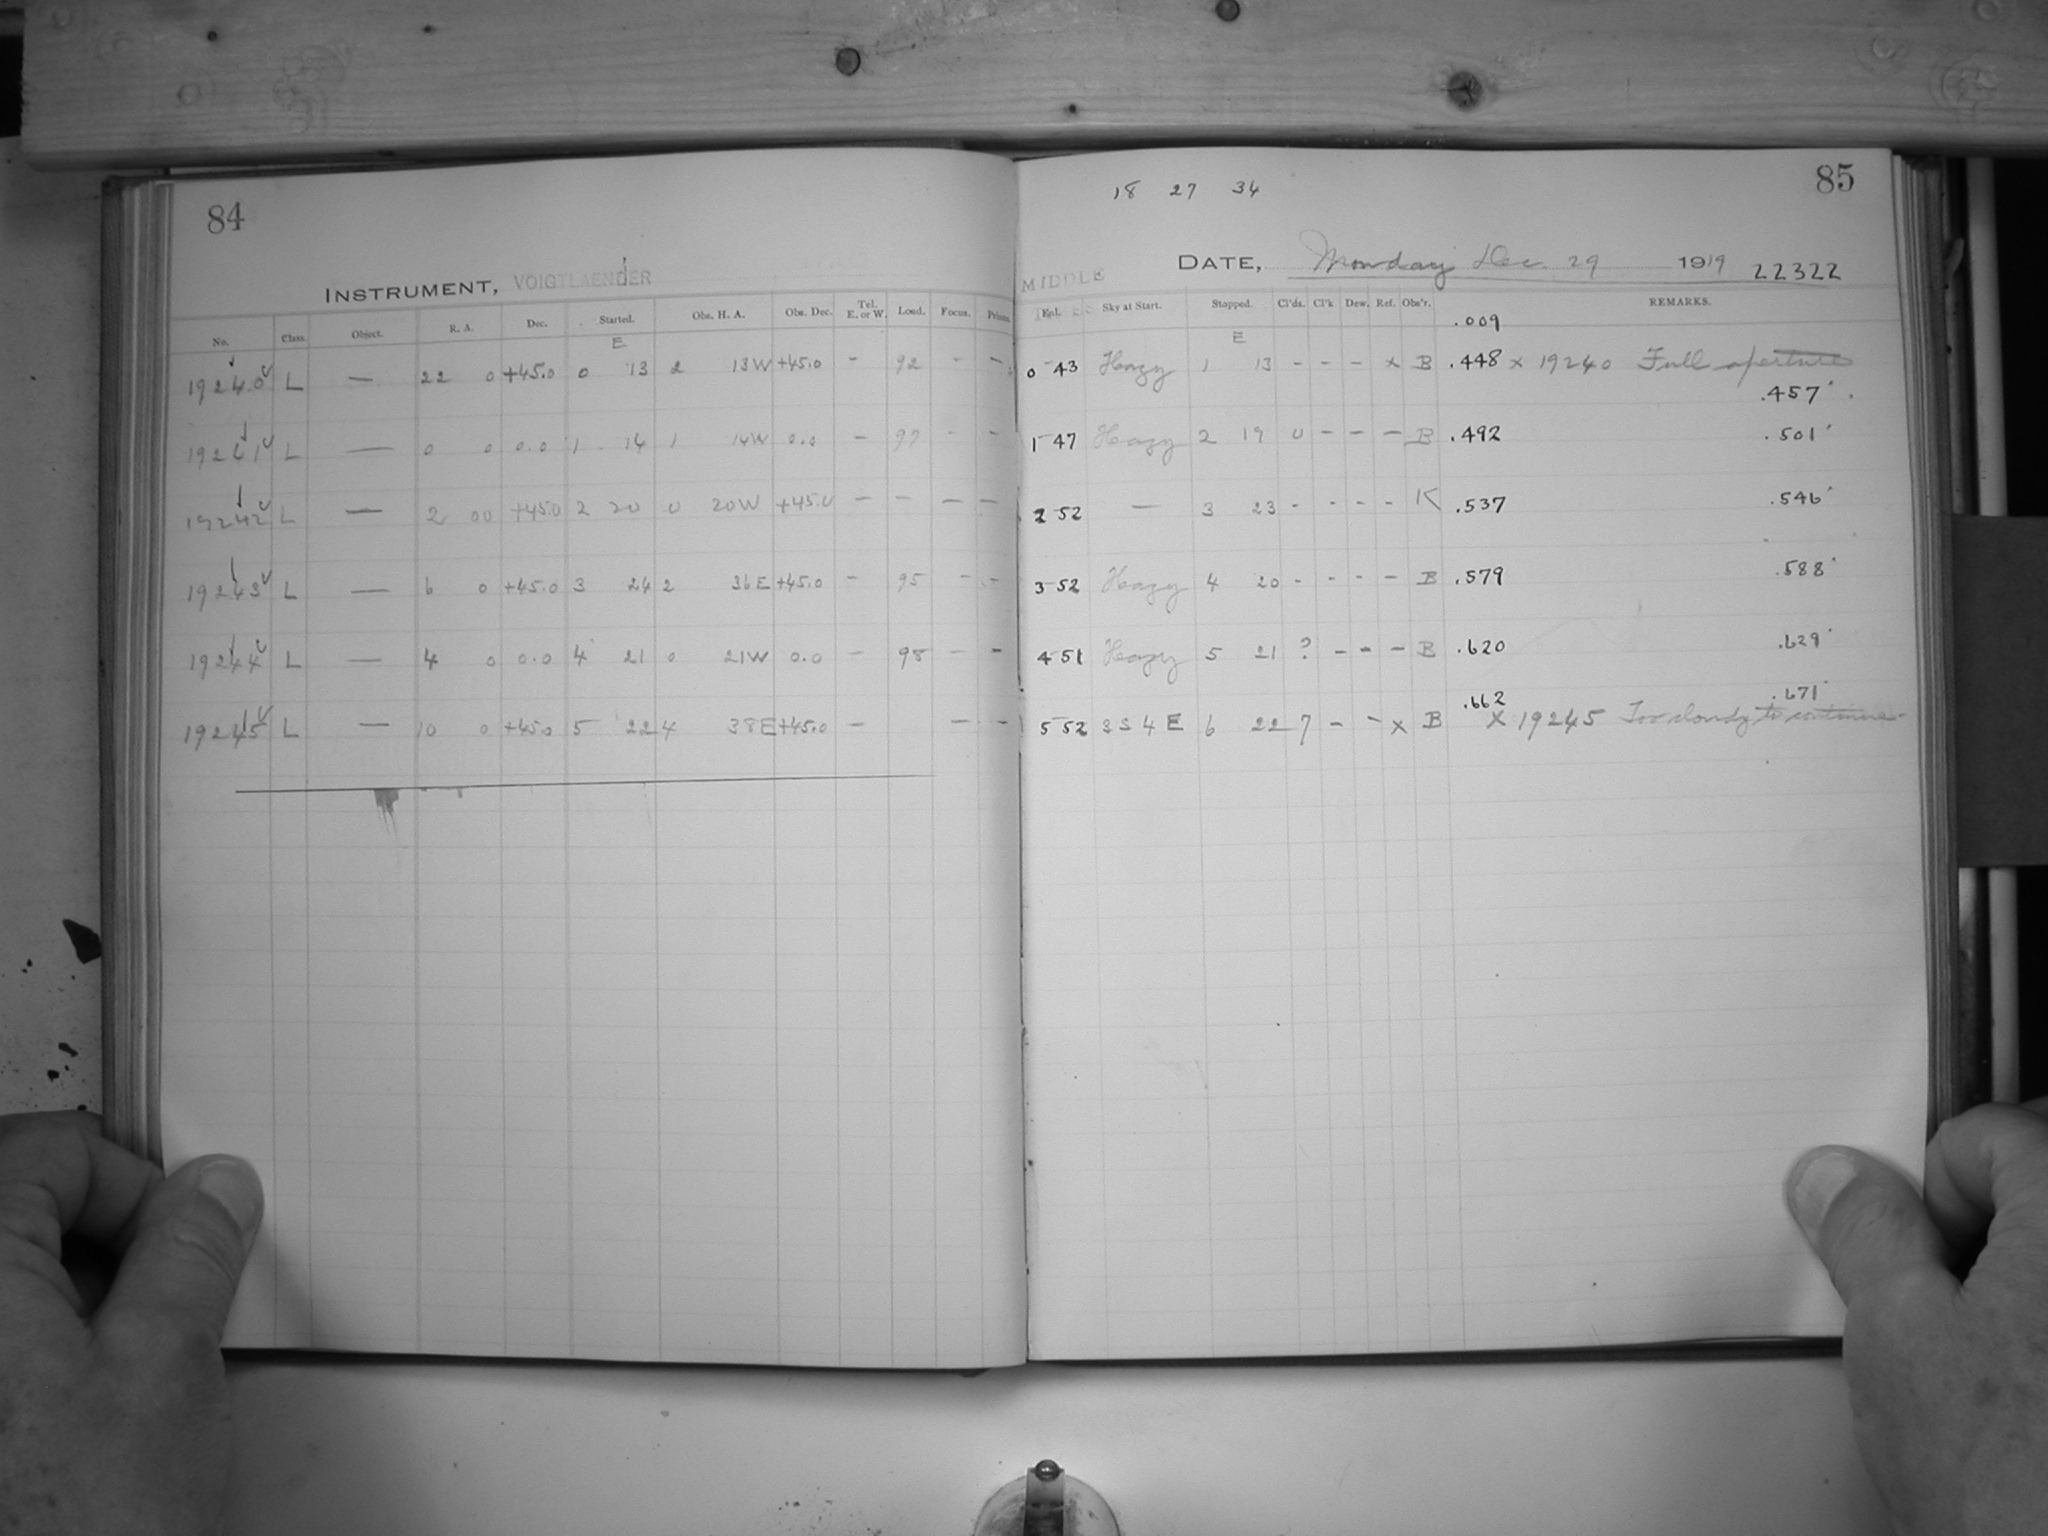 84
INSTRUMENT, VOIGTLAENDER
No. Class. Object. R. A. Dec. Started. Obs. H. A. Obs. Dec. Tel. E. or W. Load. Focus. Prisms.
E
19240 L — 22 0 +45.0 0 13 2 13W +45.0 - 92 - -
19241 L — 0 0 0.0 1 14 1 14W 0.0 - 97 - -
19242 L — 2 00 +45.0 2 20 0 20W +45.0 - - - -
19243 L — 6 0 +45.0 3 24 2 36E +45.0 - 95 - -
19244 L — 4 0 0.0 4 21 0 21W 0.0 - 98 - -
19245 L — 10 0 +45.0 5 22 4 38E +45.0 - - -
18 27 34
85
MIDDLE DATE, Monday Dec. 29 1919 22322
Sky at Start. Stopped. Cl'ds. Cl'k Dew. Ref. Obs'r. REMARKS.
.009
E
0 43 Hazy 1 13 - - - x B .448 x 19240 Full aperture
.457
1 47 Hazy 2 19 0 - - - B .492 .501
2 52 — 3 23 - - - - K .537 .546
3 52 Hazy 4 20 - - - - B .579 .588
4 51 Hazy 5 21 ? - - - B .620 .629
.662 .671
5 52 3 S 4 E 6 22 7 - - x B x 19245 Too cloudy to continue